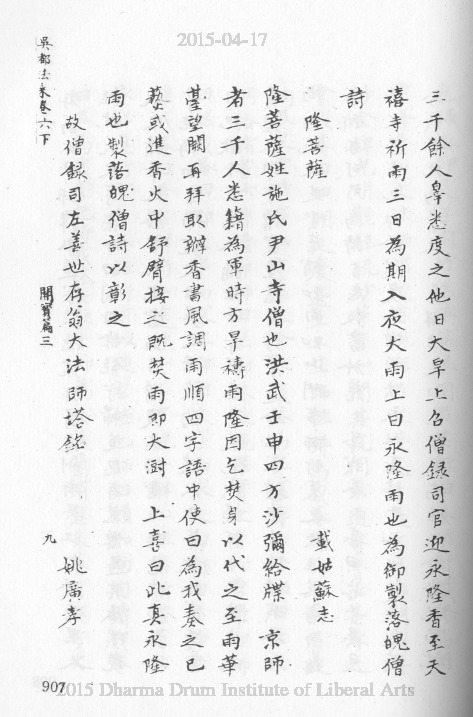 2015-04-17
吳都法乘卷六下
三千餘人皐悉度之他日大旱上召僧録司官迎永隆香至天
禧寺祈雨三日為期入夜大雨上曰永隆雨也為御製落魄僧
詩
隆菩薩
載姑蘇志
隆菩薩姓施氏尹山寺僧也洪武壬申四方沙彌給牒 京師
者三千人悉籍為軍時方旱禱雨隆因乞焚身以代之至雨華
臺望闕再拜取辦香書風調雨順四字語中使曰為我奏之已
爇或進香火中舒臂接之既焚雨即大澍 上喜曰此真永隆
雨也製落魄僧詩以彰之
故僧録司左善世存翁大法師塔銘
姚廣孝
開寶篇三
九
907
2015 Dharma Drum Institute of Liberal Arts